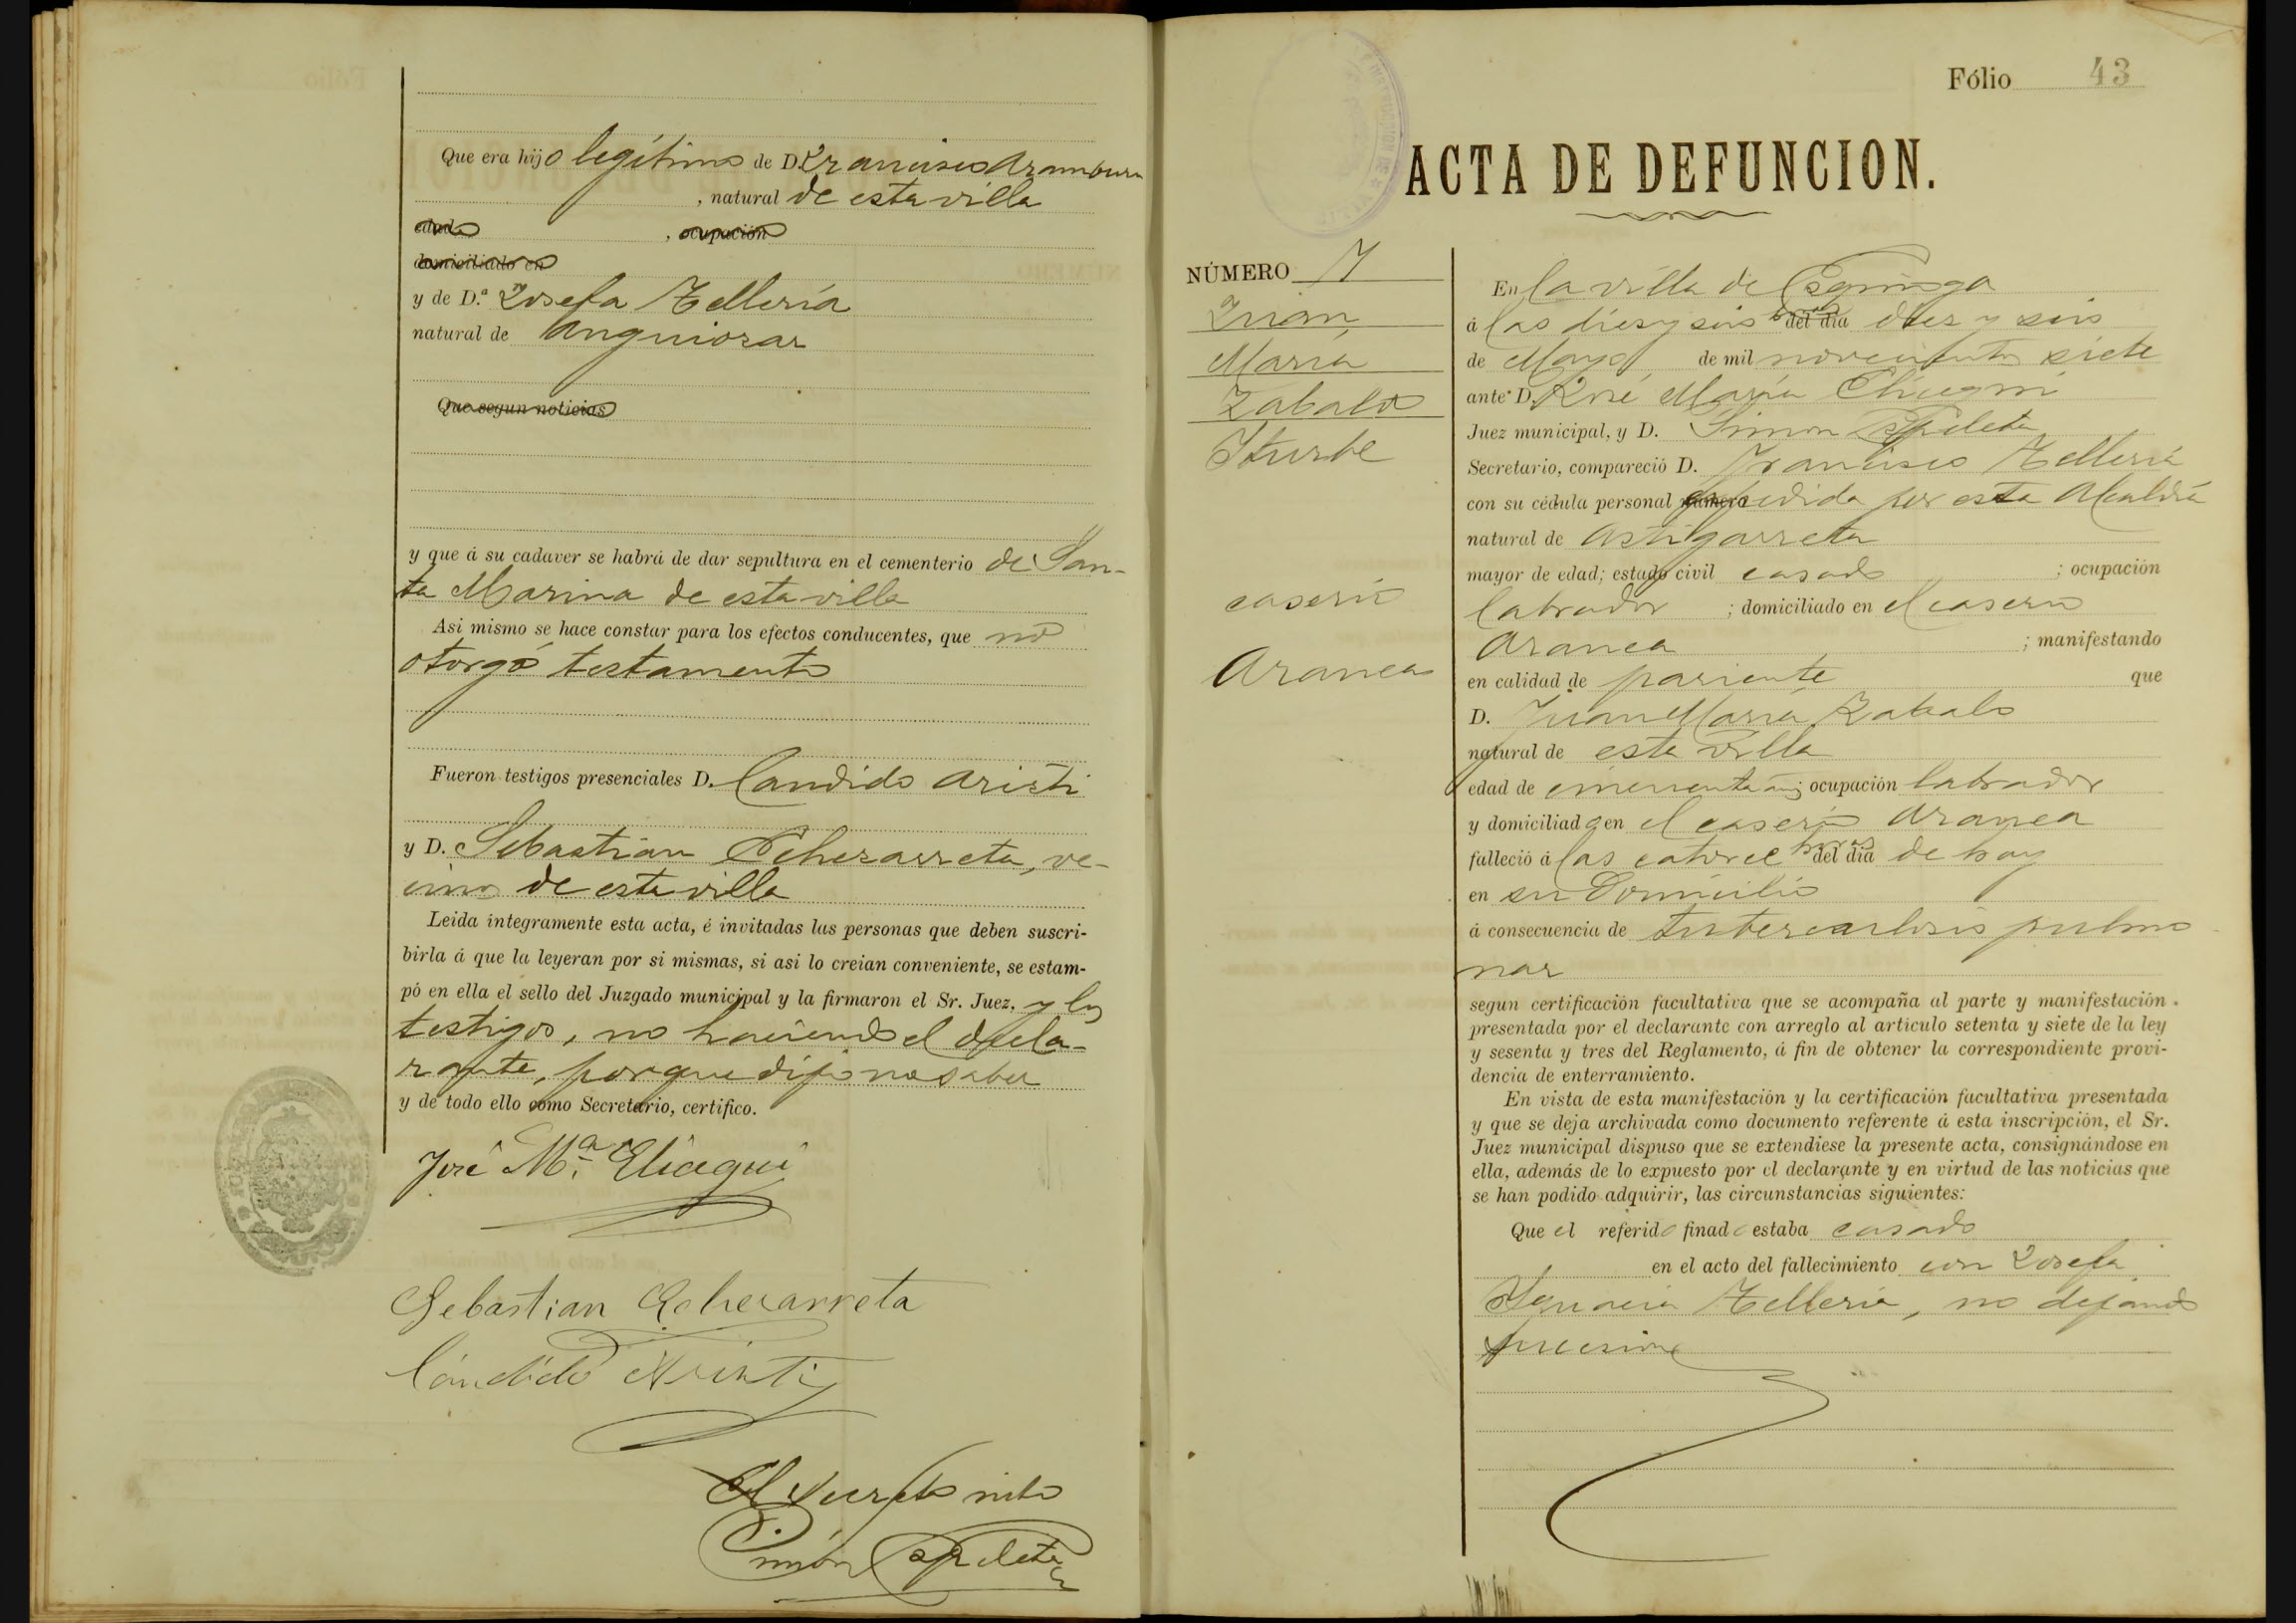 Que era hijo legítimo de D. Francisco Aramburu
, natural de esta villa
edad , ocupación
domiciliado en
y de D.ª Josefa Tellería
natural de Anguiozar
Que segun noticias
y que á su cadaver se habrá de dar sepultura en el cementerio de San-
ta Marina de esta villa
Asi mismo se hace constar para los efectos conducentes, que no
otorgó testamento
Fueron testigos presenciales D. Candido Aristi
y D. Sebastián Echezarreta, ve-
cinos de esta villa
Leida íntegramente esta acta, é invitadas las personas que deben suscri-
birla á que la leyeran por si mismas, si asi lo creian conveniente, se estam-
pó en ella el sello del Juzgado municipal y la firmaron el Sr. Juez, y los
testigos, no haciendo el decla-
rante, porque dijo no saber
y de todo ello como Secretario, certifico.
José M.ª Elicegui
Sebastian Echezarreta
Cándido Aristi
El Secretario
Simón Ezpeleta
Fólio 43
ACTA DE DEFUNCION.
NÚMERO 7
Juan
María
Zabalo
Iturbe
caserío
Aranea
En la villa de Ezquioga
á las diez y seis horas del dia diez y seis
de Mayo de mil novecientos siete
ante D. José María Elicegui
Juez municipal, y D. Simon Ezpeleta
Secretario, compareció D. Francisco Tellería
con su cédula personal número expedida por esta Alcaldía
natural de Astigarreta
mayor de edad; estado civil casado ; ocupación
labrador ; domiciliado en el caserío
Aranea ; manifestando
en calidad de pariente que
D. Juan María Zabalo
natural de esta villa
edad de cincuenta añ; ocupación labrador
y domiciliado en el caserío Aranea
falleció á las catorce horas del dia de hoy
en su domicilio
á consecuencia de tuberculosis pulmo
nar
segun certificación facultativa que se acompaña al parte y manifestación
presentada por el declarante con arreglo al artículo setenta y siete de la ley
y sesenta y tres del Reglamento, á fin de obtener la correspondiente provi-
dencia de enterramiento.
En vista de esta manifestación y la certificación facultativa presentada
y que se deja archivada como documento referente á esta inscripción, el Sr.
Juez municipal dispuso que se extendiese la presente acta, consignándose en
ella, además de lo expuesto por el declarante y en virtud de las noticias que
se han podido adquirir, las circunstancias siguientes:
Que el referido finado estaba casado
en el acto del fallecimiento con Josefa
Ignacia Tellería, no dejando
sucesión